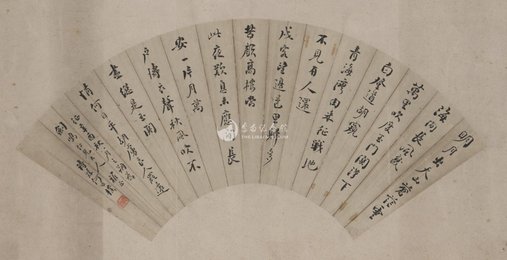 明月出天山蒼茫雲
海間長風幾
萬里吹度玉門關漢下
白登道胡窺
青海灣由來征戰地
不見有人還
戍客望邊邑思歸多
苦顏高樓當
此夜歎息未應閒 長
安一片月萬
戶擣衣聲秋風吹不
盡總是玉關
情何日平胡虜良人罷遠
征